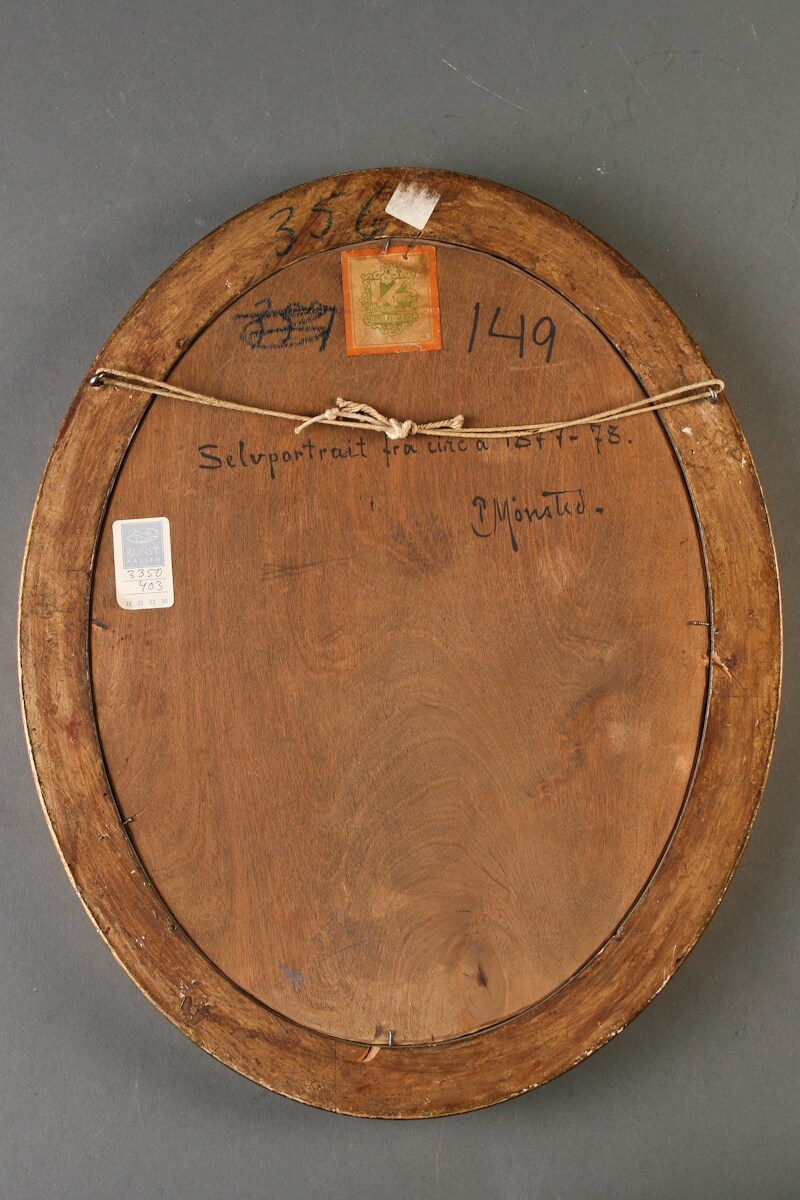 356
149
Selvportrait fra circa 1877-78.
P Mönsted.
KUNST
HALLEN
3350
403